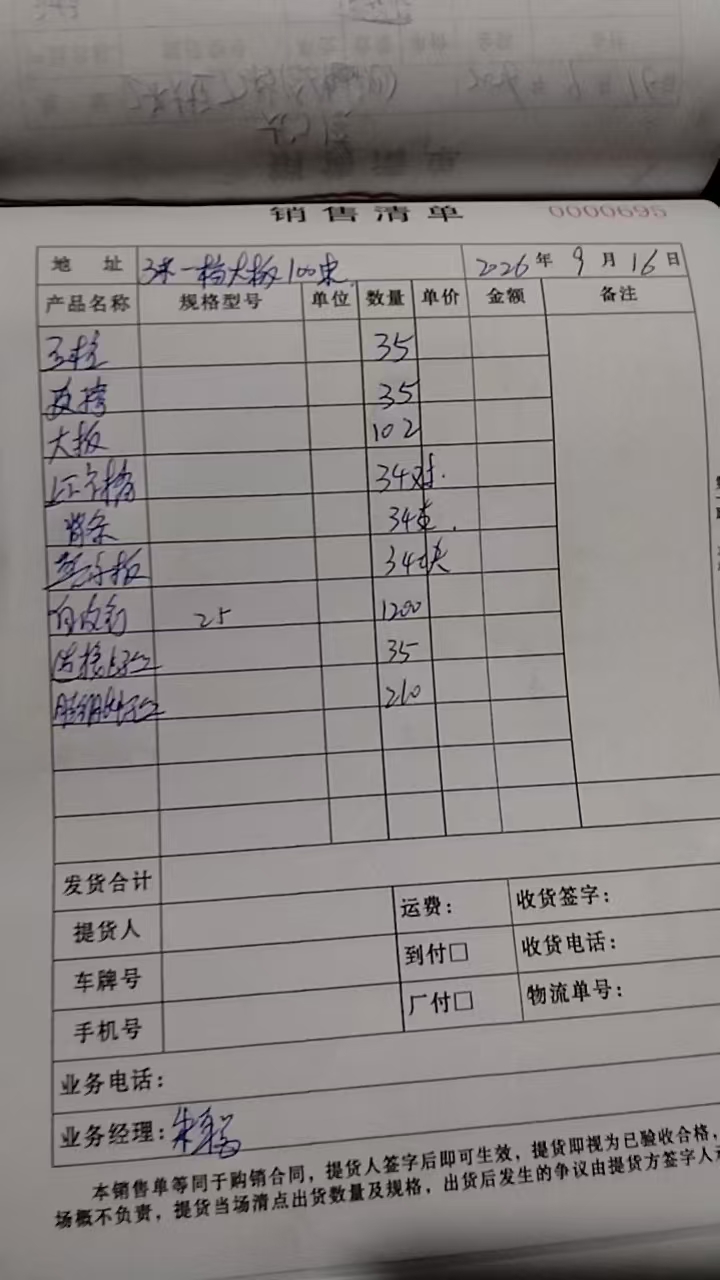 销售清单 0000695
地 址 3米一档大板100束 2026年9月16日
产品名称 规格型号 单位 数量 单价 金额 备注
立柱 35
35
大板 102
34对.
背条 34支.
34块
自攻钉 25 1200
连接螺丝 35
210
发货合计
提货人 运费： 收货签字：
车牌号 到付□ 收货电话：
手机号 厂付□ 物流单号：
业务电话：
业务经理：朱
本销售单等同于购销合同，提货人签字后即可生效，提货即视为已验收合格，
场概不负责，提货当场清点出货数量及规格，出货后发生的争议由提货方签字人